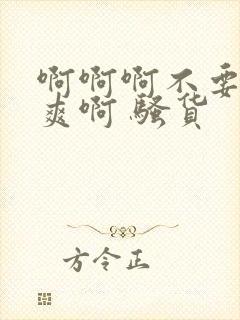 啊啊啊不要
爽啊 骚货
方令正